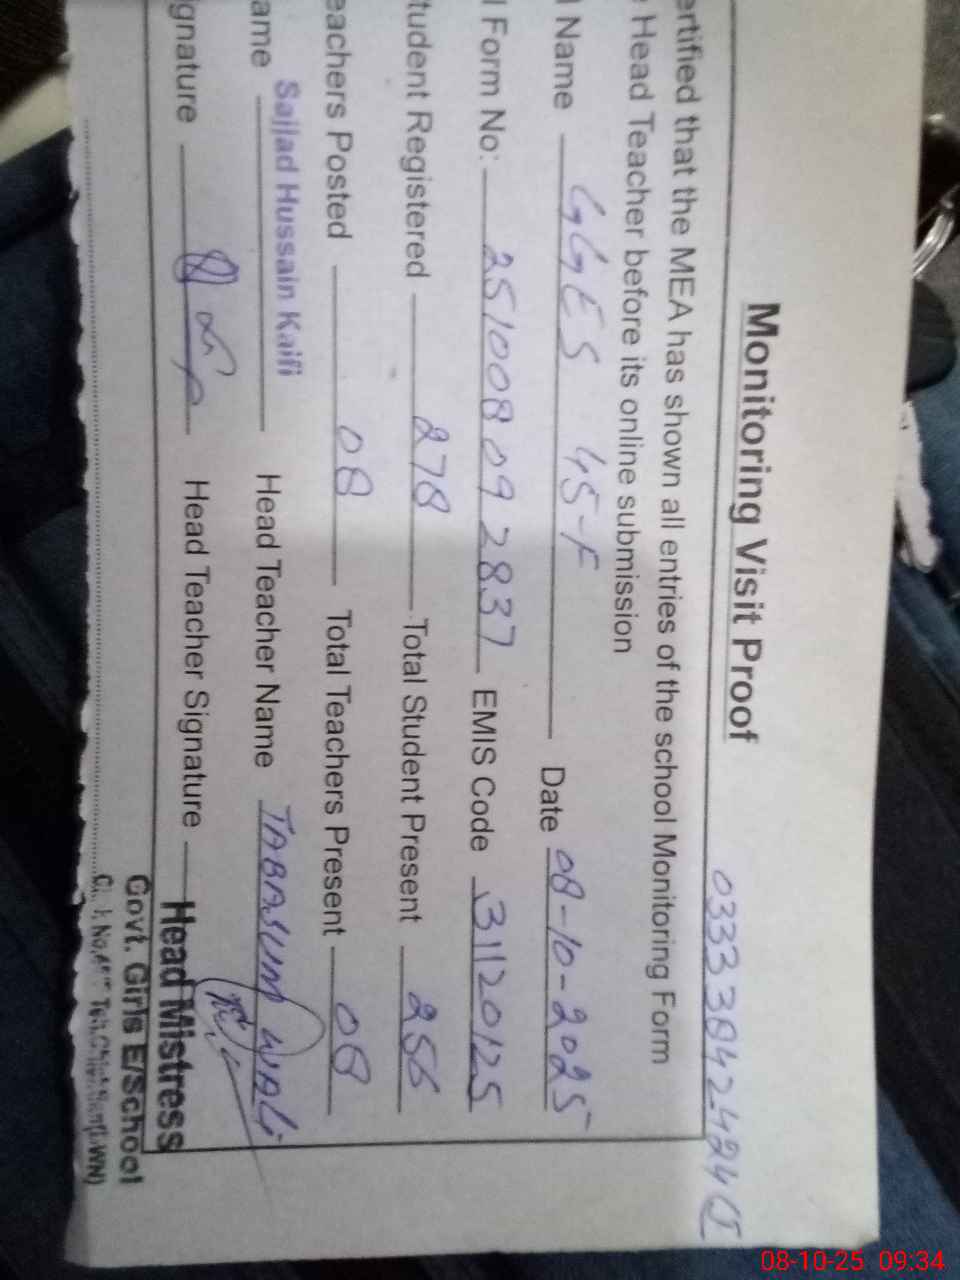 Monitoring Visit Proof
ertified that the MEA has shown all entries of the school Monitoring Form
Head Teacher before its online submission
l Name GGES 45-F Date 08-10-2025
l Form No: 25100809 2837 EMIS Code 31120125
tudent Registered 278 Total Student Present 256
eachers Posted 08 Total Teachers Present 08
ame Sajjad Hussain Kaifi Head Teacher Name TABASUM WALI
ignature Head Teacher Signature
Head Mistress
Govt. Girls E/School
08-10-25 09:34